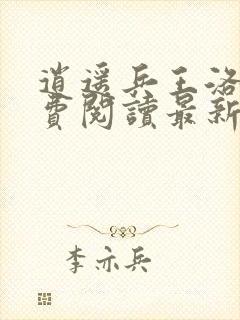 逍遥兵王洛
費閱讀最新
李亦兵